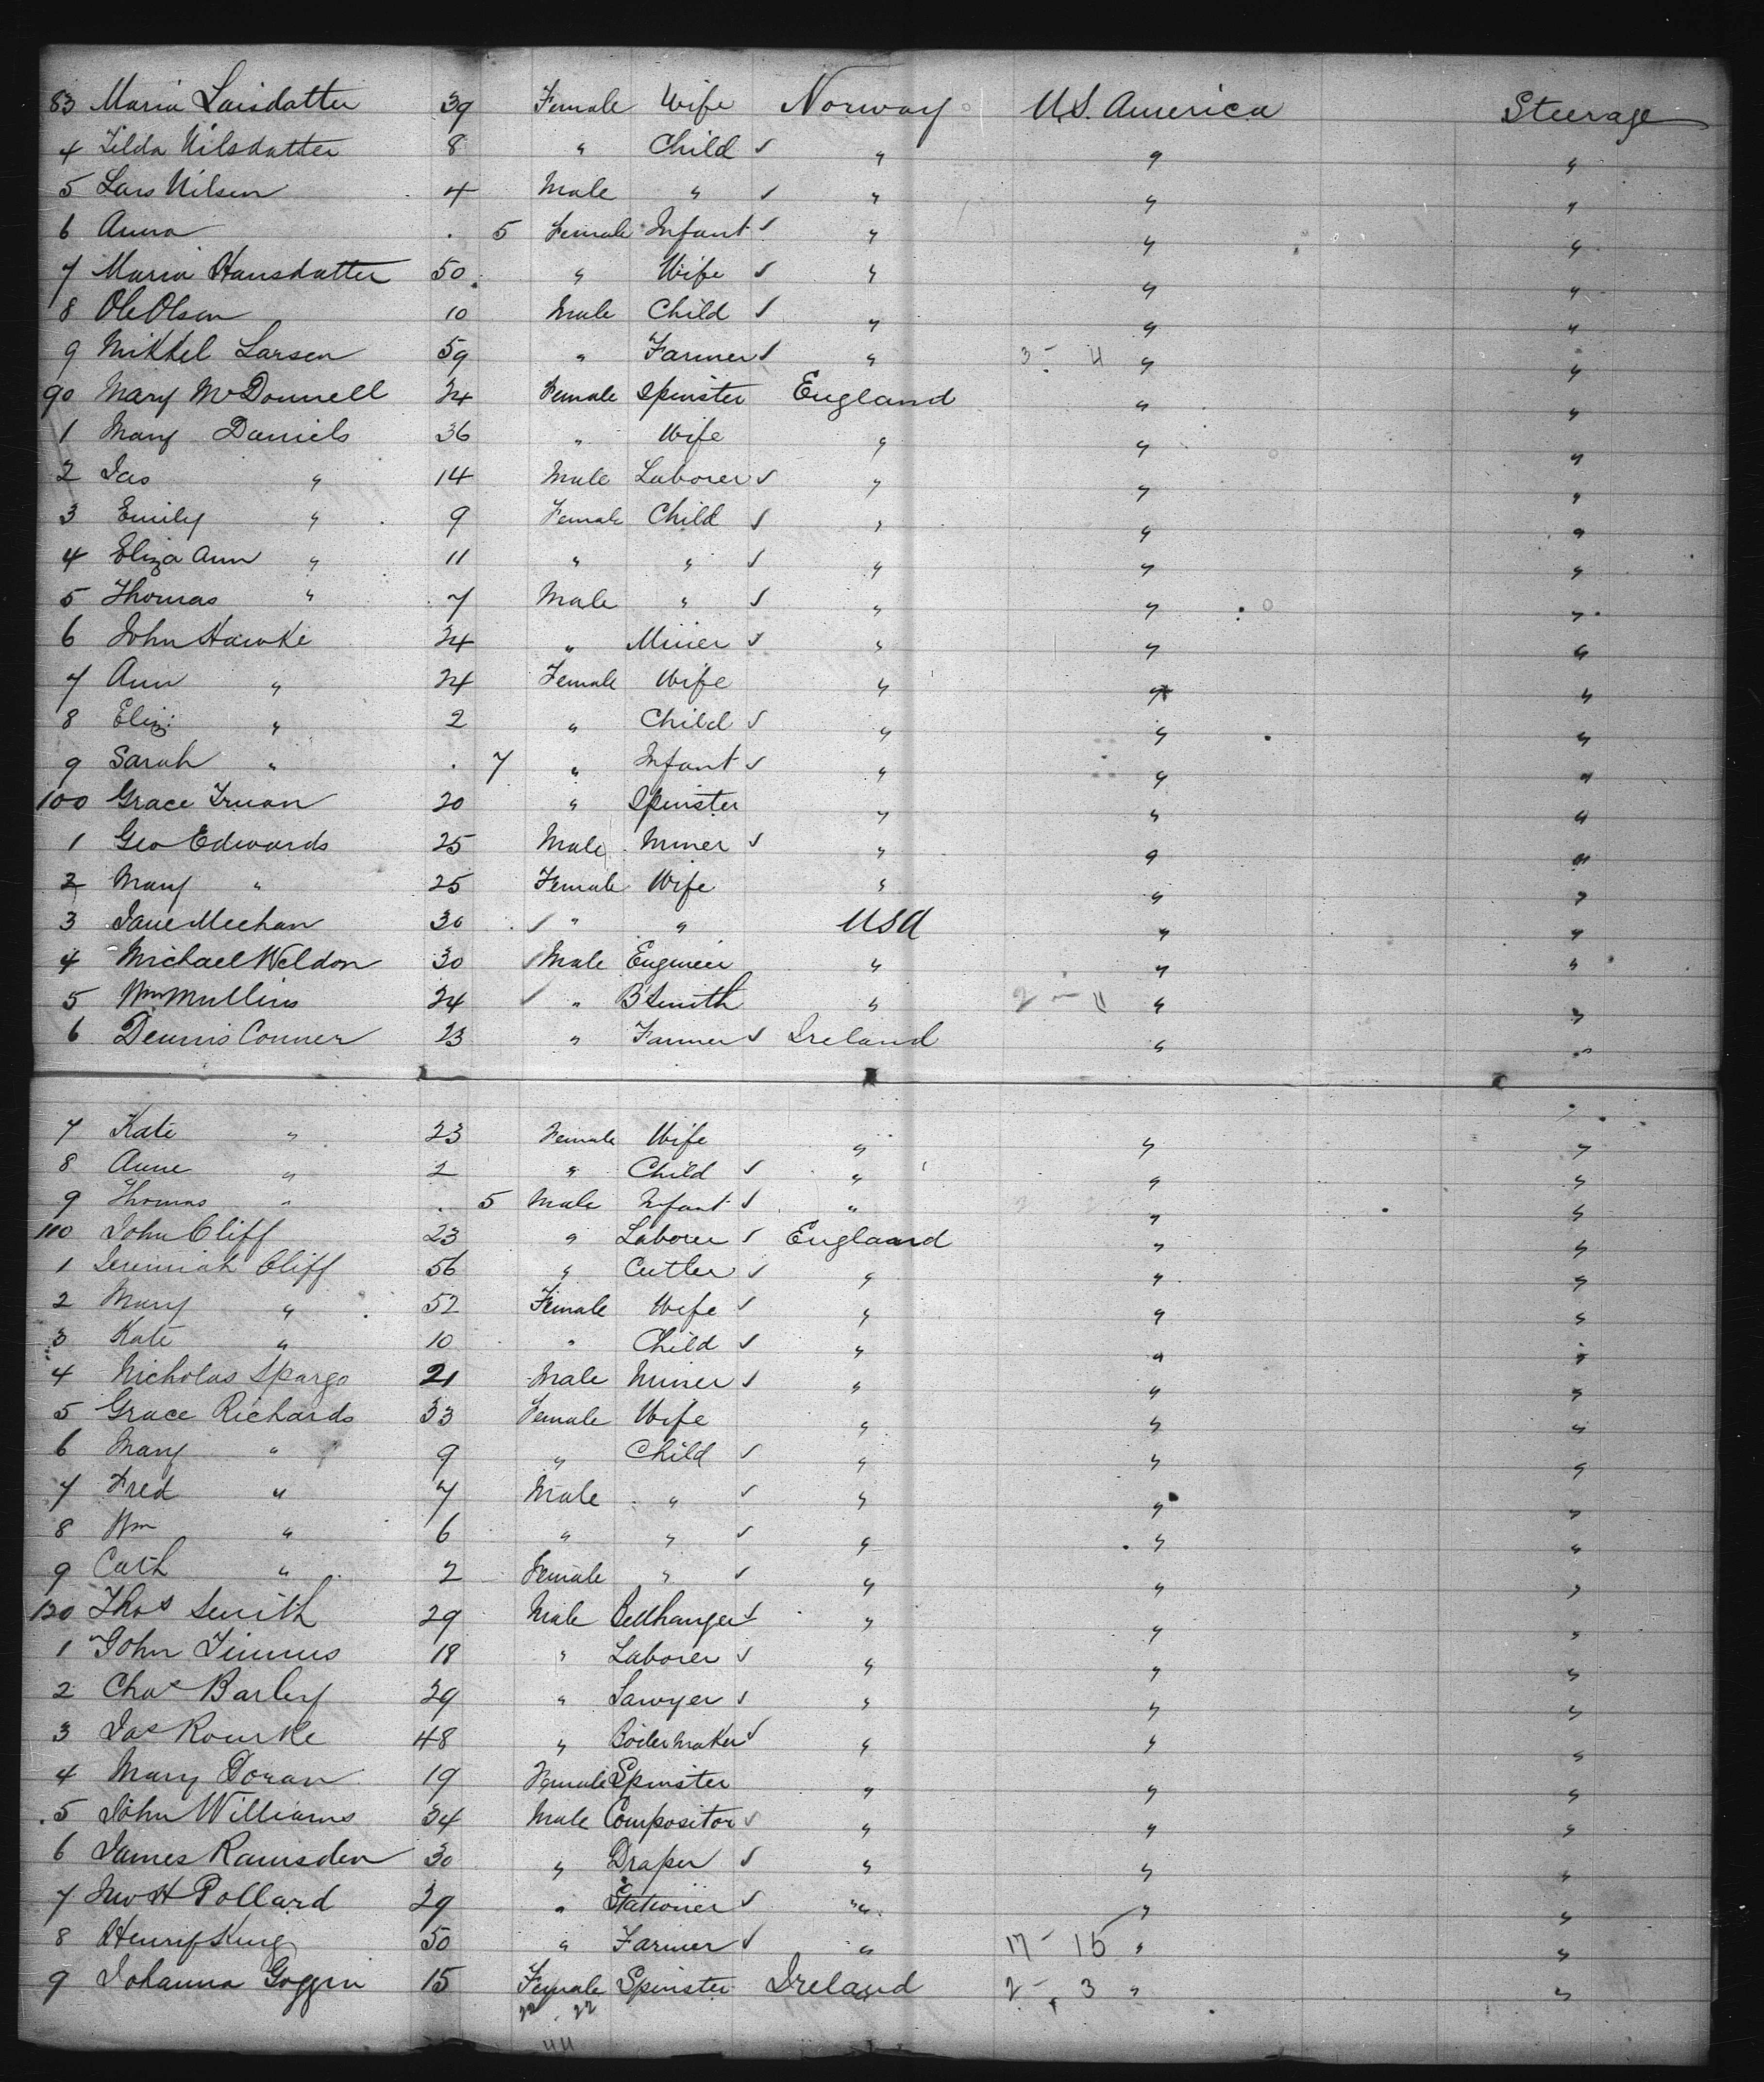 83 Maria Larsdatter 39 Female Wife Norway U.S. America Steerage
4 Tilda Nilsdatter 8 " Child ✓ " " "
5 Lars Nilsen 4 Male " ✓ " " "
6 Anna . 5 Female Infant ✓ " " "
7 Maria Hansdatter 50 " Wife ✓ " " "
8 Ole Olsen 10 Male Child ✓ " " "
9 Mikkel Larsen 59 " Farmer ✓ " 3 - 4 " "
90 Mary McDonnell 24 Female Spinster England " "
1 Mary Daniels 36 " Wife " " "
2 Jas " 14 Male Laborer ✓ " " "
3 Emily " 9 Female Child ✓ " " "
4 Eliza Ann " 11 " " ✓ " " "
5 Thomas " 7 Male " ✓ " " "
6 John Hawke 24 " Miner ✓ " " "
7 Ann " 24 Female Wife " " "
8 Eliz: " 2 " Child ✓ " " "
9 Sarah " . 7 " Infant ✓ " " "
100 Grace Truan 20 " Spinster " " "
1 Geo Edwards 25 Male Miner ✓ " " "
2 Mary " 25 Female Wife " " "
3 Jane Meehan 30 ✓ " " USA " "
4 Michael Weldon 30 ✓ Male Engineer " " "
5 Wm Mullins 24 ✓ " B'Smith " 2 - 11 " "
6 Dennis Conner 23 " Farmer ✓ Ireland " "
7 Kate " 23 Female Wife " " "
8 Anne " 2 " Child ✓ " " "
9 Thomas " . 5 Male Infant ✓ " " "
110 John Cliff 23 " Laborer ✓ England " "
1 Jeremiah Cliff 56 " Cutler ✓ " " "
2 Mary " 52 Female Wife ✓ " " "
3 Kate " 10 " Child ✓ " " "
4 Nicholas Spargo 21 Male Miner ✓ " " "
5 Grace Richards 33 Female Wife " " "
6 Mary " 9 " Child ✓ " " "
7 Fred " 7 Male " ✓ " " "
8 Wm " 6 " " ✓ " " "
9 Cath " 2 Female " ✓ " " "
120 Thos Smith 29 Male Bellhanger ✓ " " "
1 John Timms 18 " Laborer ✓ " " "
2 Chas Barley 29 " Sawyer ✓ " " "
3 Jas Rourke 48 " Boilermaker ✓ " " "
4 Mary Doran 19 Female Spinster " " "
5 John Williams 34 Male Compositor ✓ " " "
6 James Ramsden 30 " Draper ✓ " " "
7 Jno H Pollard 29 " Stationer ✓ " " "
8 Henry King 50 " Farmer ✓ " 17 - 15 " "
9 Johanna Goggin 15 Female Spinster Ireland 2 - 3 " "
22 22
44